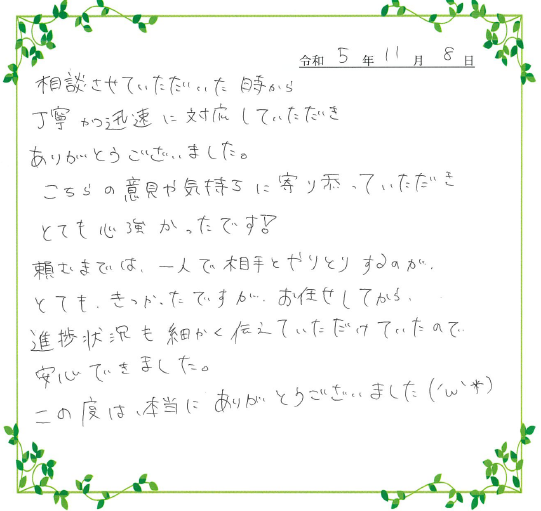 令和 5 年 11 月 8 日
相談させていただいた時から
丁寧かつ迅速に対応していただき
ありがとうございました。
こちらの意見や気持ちに寄り添っていただき
とても心強かったです!
頼むまでは、一人で相手とやりとりするのが、
とても、きつかったですが、お任せしてから、
進捗状況も細かく伝えていただけていたので
安心できました。
この度は、本当にありがとうございました(´ω`*)